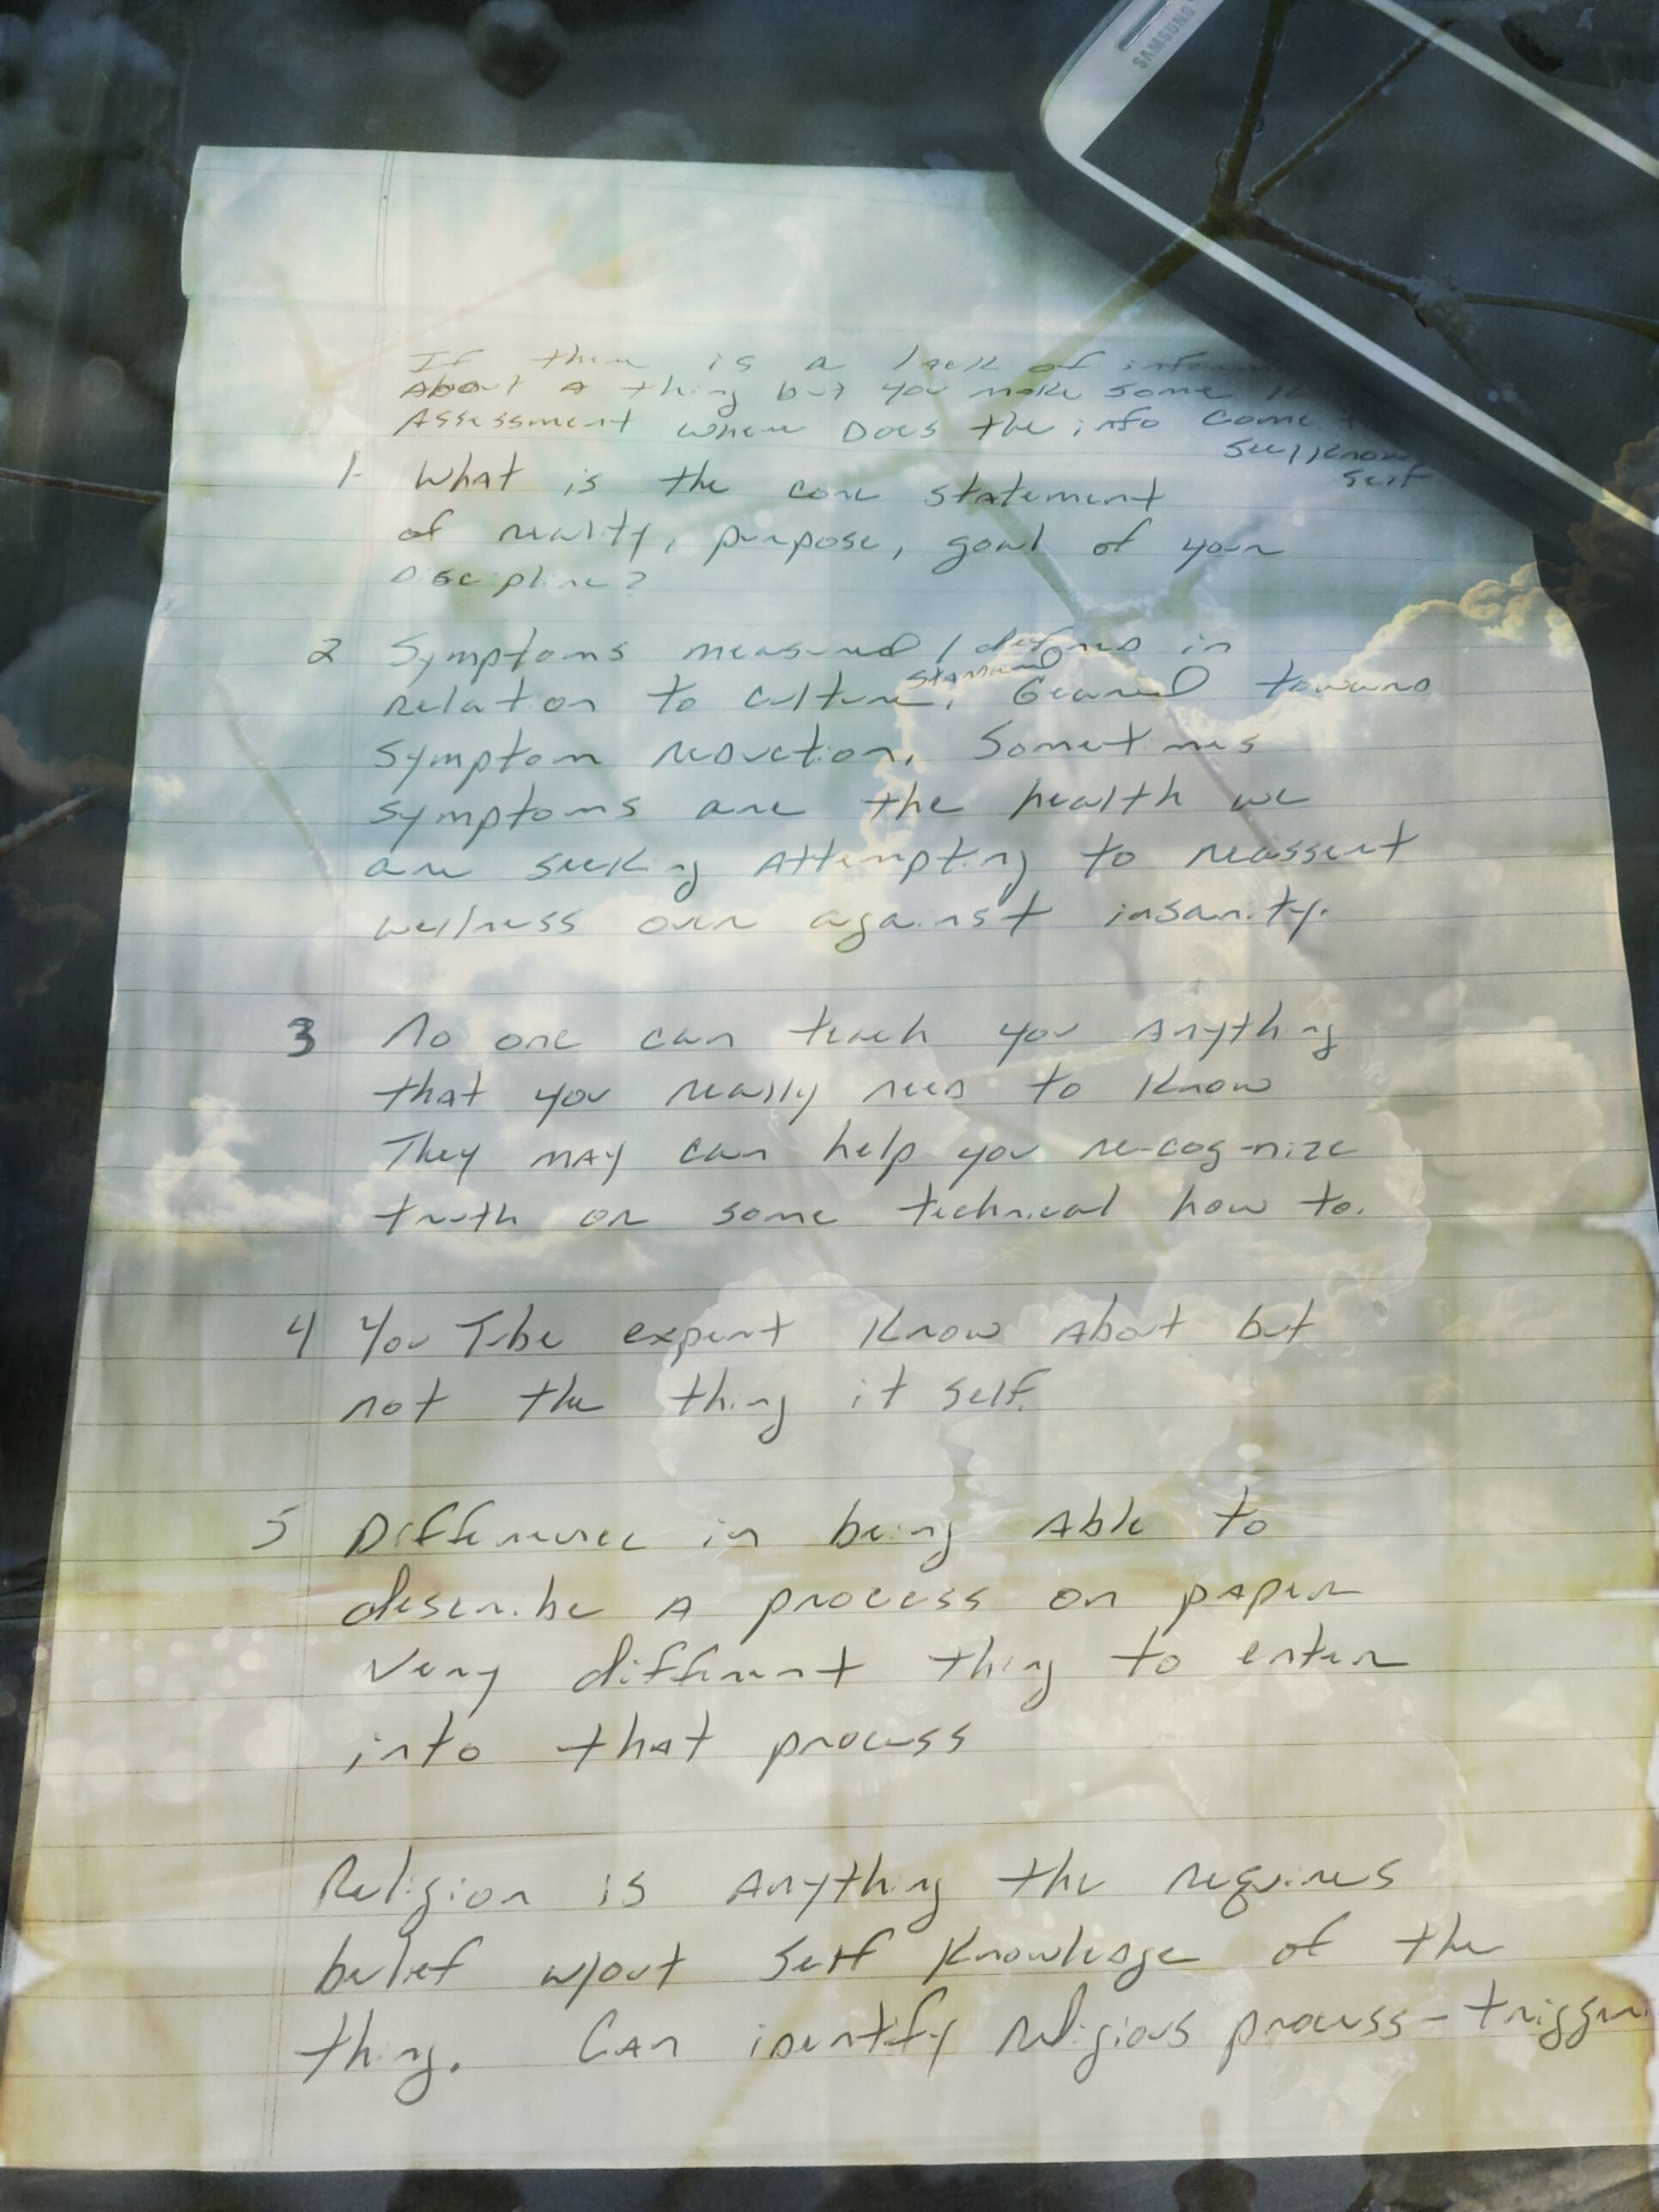 SAMSUNG
If there is a lack of
About A thing but you make some
Assessment where Does the info come
self know
self
1- What is the core statement
of reality, purpose, goal of your
Discipline?
2 Symptoms measured / defined in
standard
relation to culture, Geared towards
symptom reduction, Sometimes
symptoms are the health we
are seeking Attempting to reassert
wellness over against insanity.
3 No one can teach you Anything
that you really need to know
They may can help you re-cog-nize
truth or some technical how to.
4 You Tube expert know About but
not the thing it self.
5 Difference in being Able to
describe A process on paper
very different thing to enter
into that process
Religion is Anything the requires
belief w/out self knowledge of the
thing. Can identify religious process - trigger